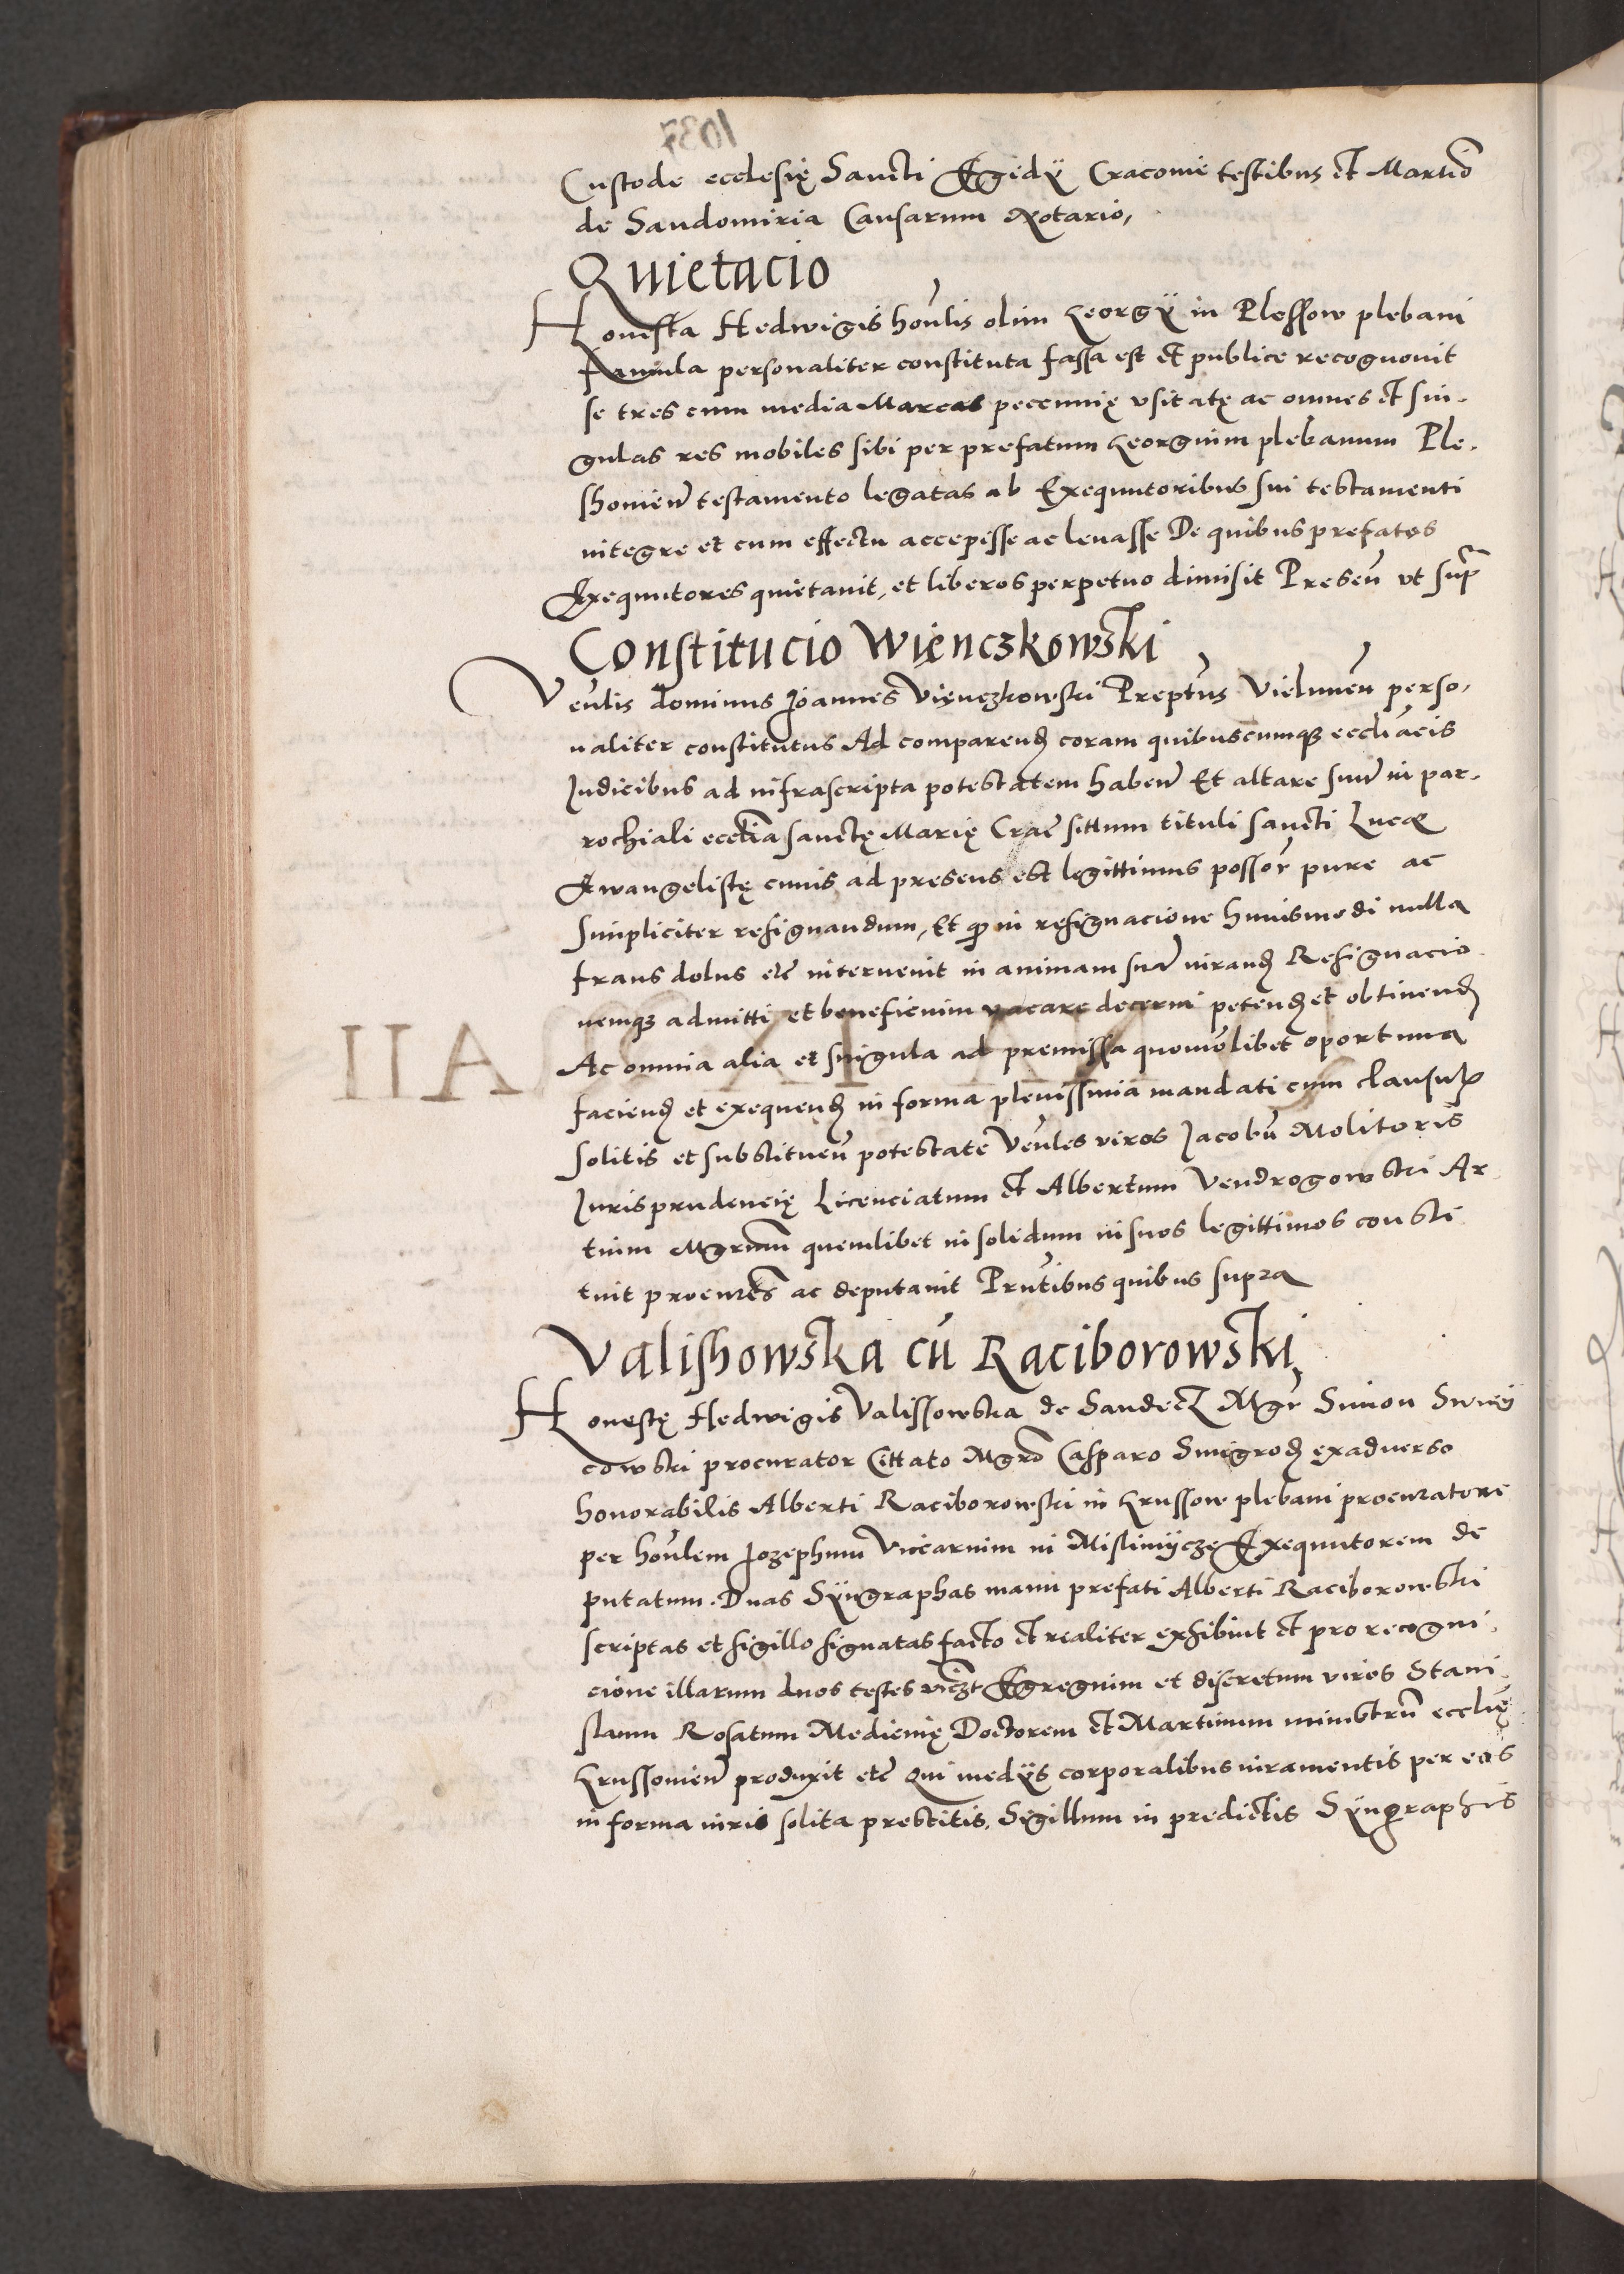 Custode ecclesię Sancti Egidÿ Cracovie testibus et Martīo
de Sandomiria Causarum Notario,
Quietacio
Honesta Hedwigis hon̄lis olim Georgÿ in Plessow plebani
famula personaliter constituta fassa est et publice recognovit
se tres cum media Marcas pecunnię usitatę ac omnes et sin-
gulas res mobiles sibi per prefatum Georgium plebanum Ple-
shovien̄ testamento legatas ab Exequutoribus sui testamenti
integre et cum effectu accepisse ac levasse De quibus prefatos
Exequutores quietavit, et liberos perpetuo dimisit Presen̄ ut sup̄
Constitucio Więnczkowski
Ven̄lis dominus Joannes Vięnczkowski Prept̄us Vielunen̄ perso-
naliter constitutus Ad comparend̄ coram quibuscumque eccliācis
Judicibus ad infrascripta potestatem haben̄ Et altare suum̄ in par-
rochiali eccl̄ia sanctę Marię Crac̄ sittum tituli sancti Lucæ
Ewangelistę cuius ad presens est legittimus possor̄ pure ac
simpliciter resignandum, Et quod in resignacione huiusmodi nulla
fraus dolus etc̄ intervenit in animam suā iurand̄ Resignacio-
nemque admitti et beneficium vacare decerni petend̄ et obtinend̄
Ac omnia alia et singula ad premissa quomōlibet oportuna
faciend̄ et exequend̄ in forma plenissima mandati cum clausul̄
solitis et substituen̄ potestate Ven̄les viros Jacobū Molitoris
Jurisprudencię Licenciatum et Albertum Vendrogowski Ar-
tium Mgrum̄ quemlibet in solidum in suos legittimos consti-
tuit procur̄es ac deputavit Prn̄tibus quibus supra
Valishowska cū Raciborowski,
Honestę Hedwigis Valissowska de Sandecz Mgr̄ Simon
cowski procurator Cittato Mgrō Casparo Smigrod̄ exadverso
honorabilis Alberti Raciborowski in Krussow plebani procuratore
per hon̄lem Jozephum Vicarium in Exequutorem de
putatum. Duas Sÿngraphas manu prefati Alberti Raciborowski
scriptas et sigillo signatas facto et realiter exhibuit et pro recogni-
cione illarum duos testes viczt Egregium et discretum viros Stani-
slaum Rosatum Medicinę Doctorem et Martinum ministrū ecclię
Krussovien̄ produxit etc̄ Qui medÿs corporalibus iuramentis per eos
in forma iuris solita prestitis. Sigillum in predictis Sÿngraphis